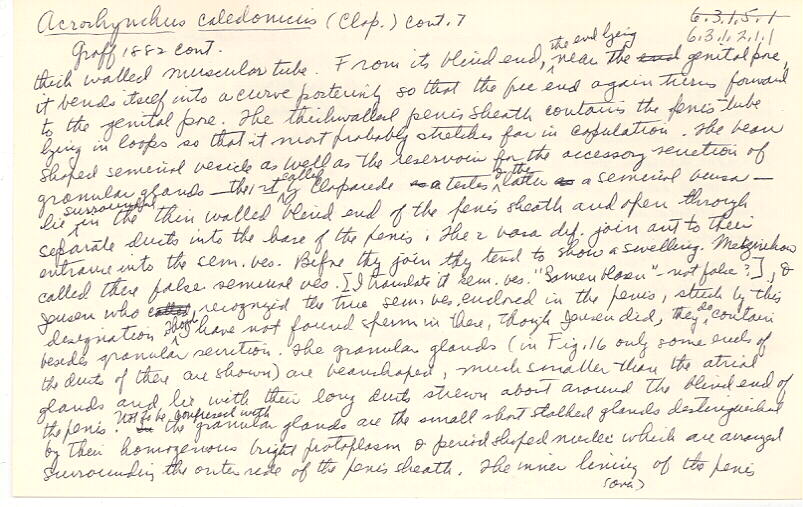 Acrorhynchus caledonicus (Clap.) cont. 7
6.3.1.5.1
6.3.1.2.1.1
Graff 1882 cont.
thick walled muscular tube. From its blind end, the end lying near the end genital pore,
it bends itself into a curve posteriorly so that the free end again turns forward
to the genital pore. The thickwalled penis sheath contains the penis tube
lying in loops so that it most probably stretches far in copulation. The bean
shaped seminal vesicle as well as the reservoir for the accessory secretion of
granular glands — the 1st called by Claparede as a testes & the latter as a seminal bursa —
lie in surrounded the thin walled blind end of the penis sheath and open through
separate ducts into the base of the penis. The 2 vasa def. join ant to their
entrance into the sem. ves. Before they join they tend to show a swelling. Metznikow
called these false seminal ves. [I translate it sem. ves. "Samen blasen" - not false?], &
Jensen who called recognized the true sem. ves. enclosed in the penis, stuck by this
designation. I have not found sperm in these, though Jensen did, they do contain
besides granular secretion. The granular glands (in Fig. 16 only some ends of
the ducts of these are shown) are beanshaped, much smaller than the atrial
glands and lie with their long ducts strewn about around the blind end of
the penis. Not to be confused with the granular glands are the small short stalked glands distinguished
by their homogenous bright protoplasm & period shaped nuclei which are arranged
surrounding the outer side of the penis sheath. The inner lining of the penis
(over)